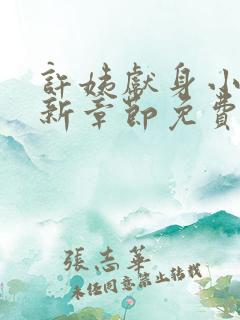 許姨獻身小
新章節免費
張志華
未經同意禁止轉載